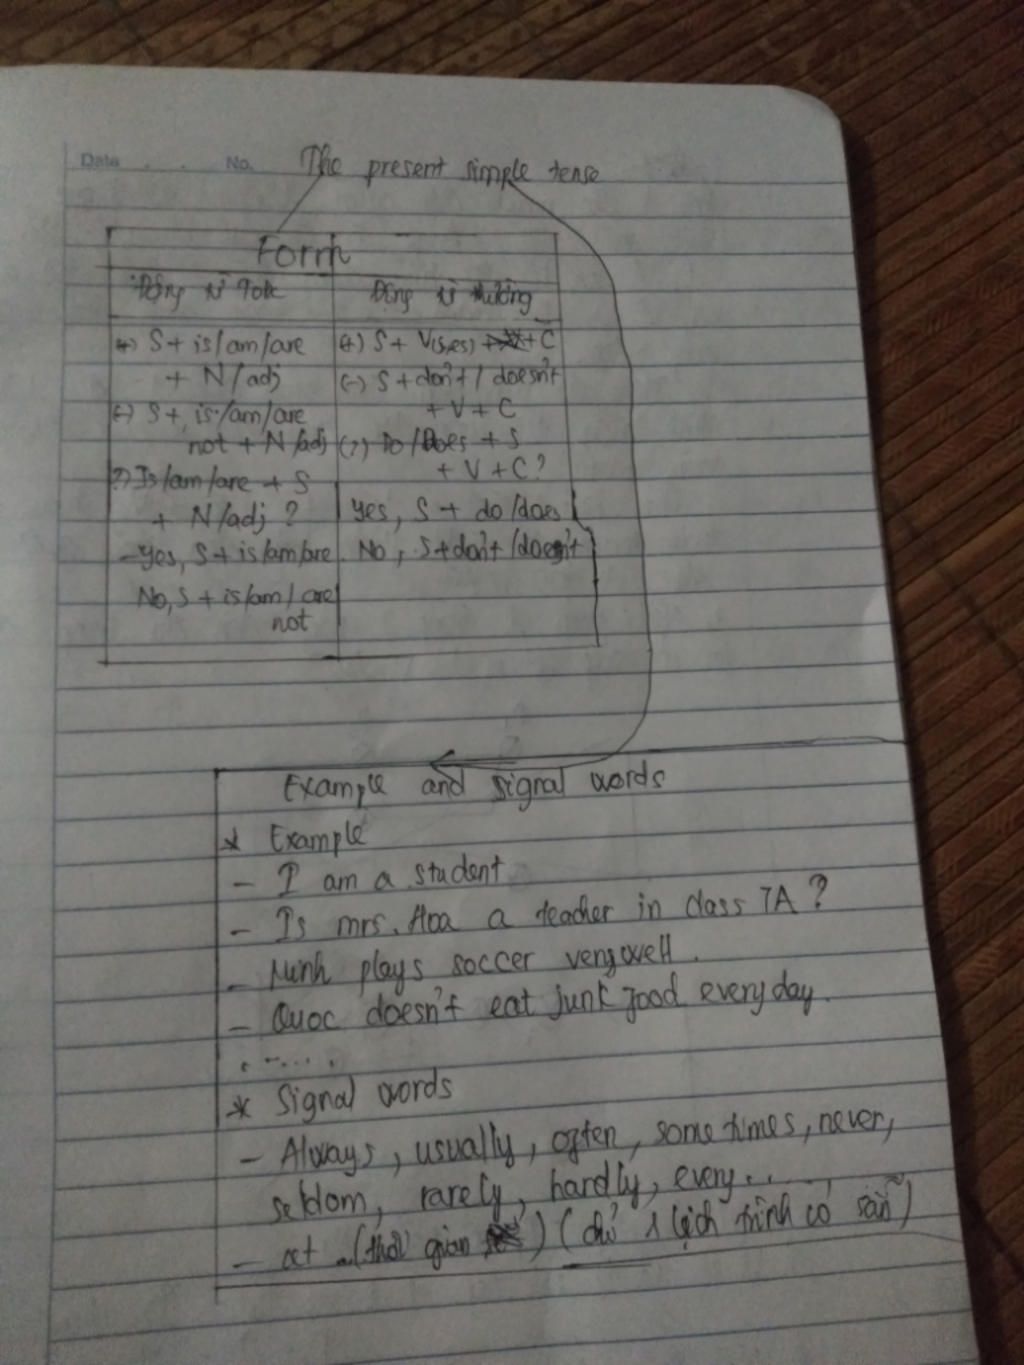 Date . . No.
The present simple tense
Form
Động từ tobe
Động từ thường
(+) S + is/am/are
+ N/adj
(-) S + is/am/are
not + N/adj
?) Is/am/are + S
+ N/adj ?
- Yes, S + is/am/are
No, S + is/am/are
not
(+) S + V(s,es) + C
(-) S + don't / doesn't
+ V + C
(?) Do/Does + S
+ V + C ?
Yes, S + do/does
No, S + don't/doesn't
Example and signal words
* Example
- I am a student
- Is mrs. Hoa a teacher in class 7A ?
- Minh plays soccer very well.
- Quoc doesn't eat junk food every day.
.......
* Signal words
- Always, usually, often, sometimes, never,
seldom, rarely, hardly, every.....,
- at ..(thời gian) (chỉ 1 lịch trình có sẵn)